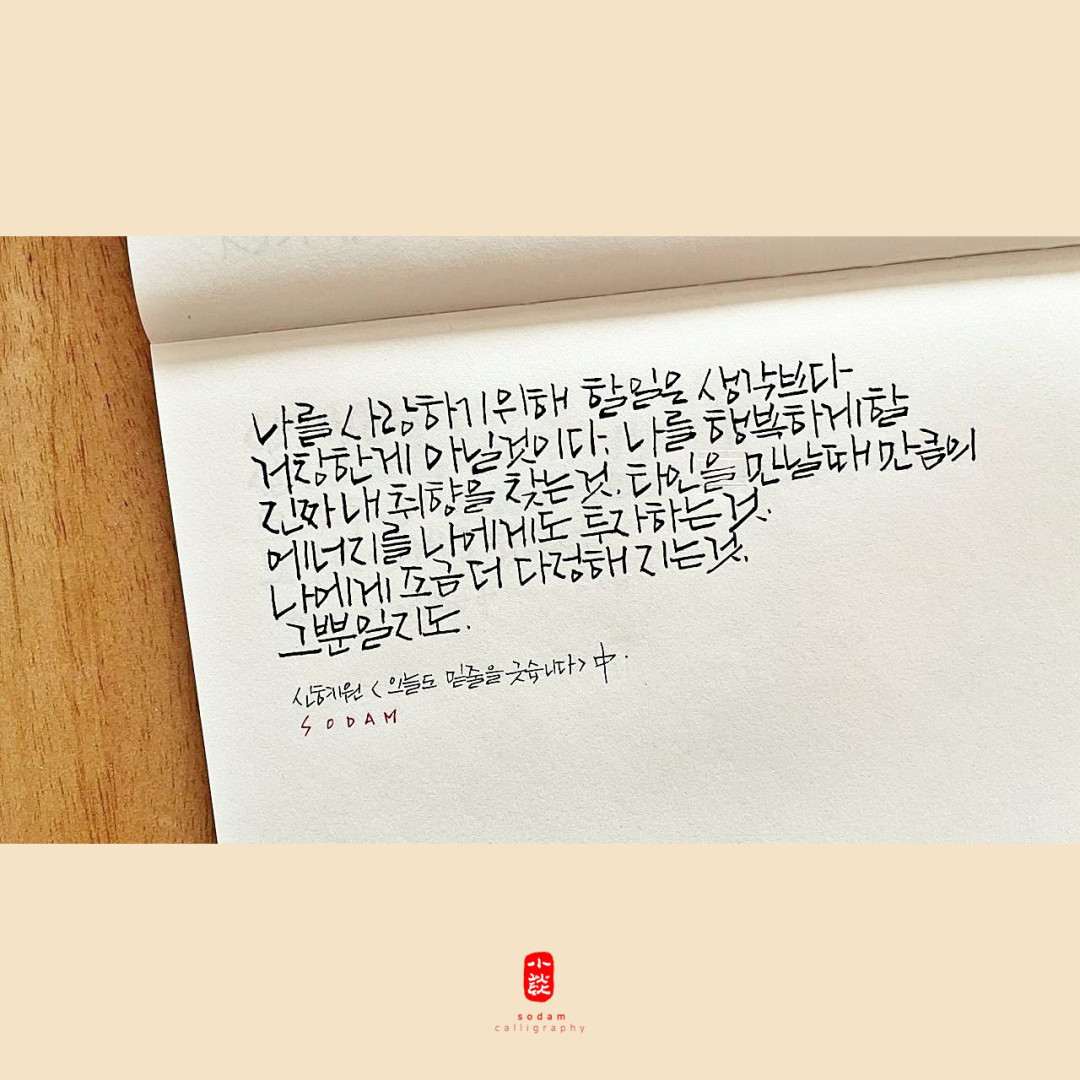 나를 사랑하기위해 할일은 생각보다
거창한게 아닐것이다. 나를 행복하게할
진짜 내 취향을 찾는것. 타인을 만날때 만큼의
에너지를 나에게도 투자하는것.
나에게 조금더 다정해 지는것.
그뿐일지도.
신혜원 <오늘도 밑줄을 긋습니다> 中.
SODAM
小談
sodam
calligraphy